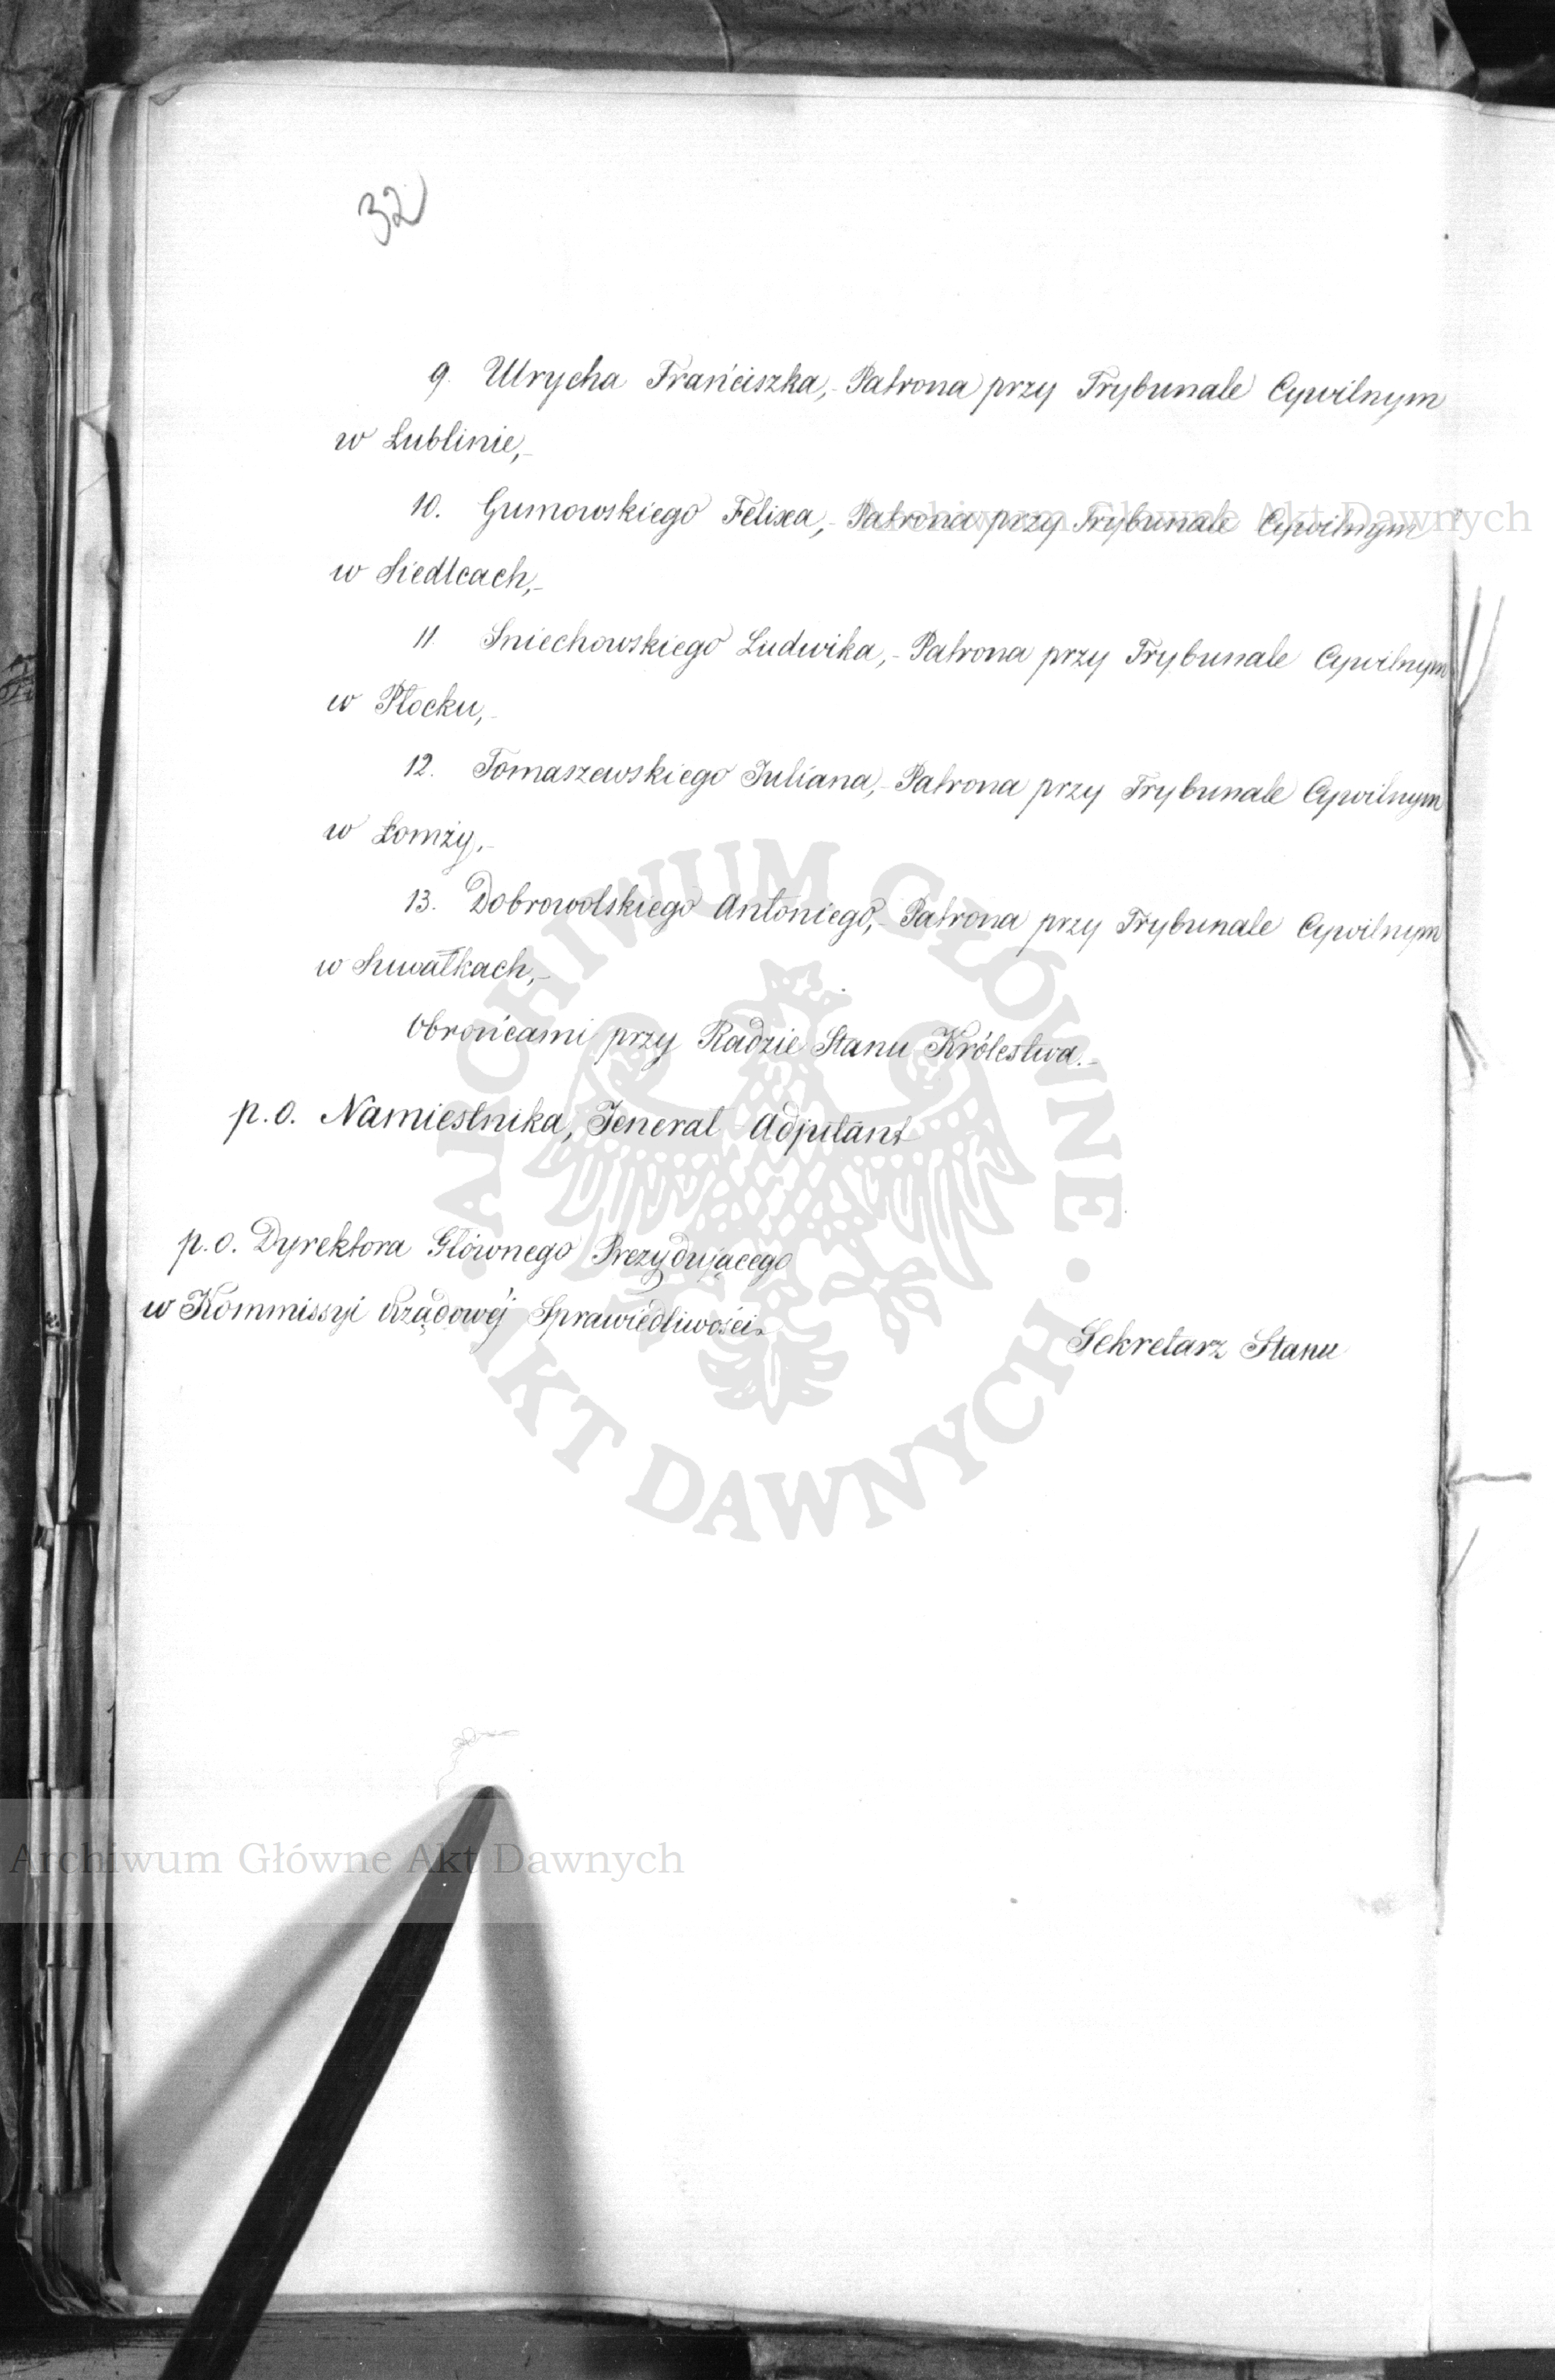 32
9. Ulrycha Franciszka,- Patrona przy Trybunale Cywilnym
w Lublinie,-
10. Gumowskiego Felixa,- Patrona przy Trybunale Cywilnym
w Siedlcach,-
11 Sniechowskiego Ludwika,- Patrona przy Trybunale Cywilnym
w Płocku,-
12. Tomaszewskiego Juliana,- Patrona przy Trybunale Cywilnym
w Łomży,-
13. Dobrowolskiego Antoniego,- Patrona przy Trybunale Cywilnym
w Suwałkach,-
Obrońcami przy Radzie Stanu Królestwa.-
p.o. Namiestnika, Jenerał Adjutant
p.o. Dyrektora Głównego Prezydującego
w Kommissyi Rządowéj Sprawiedliwości.
Sekretarz Stanu
Archiwum Główne Akt Dawnych
ARCHIWUM GŁÓWNE
AKT DAWNYCH
Archiwum Główne Akt Dawnych